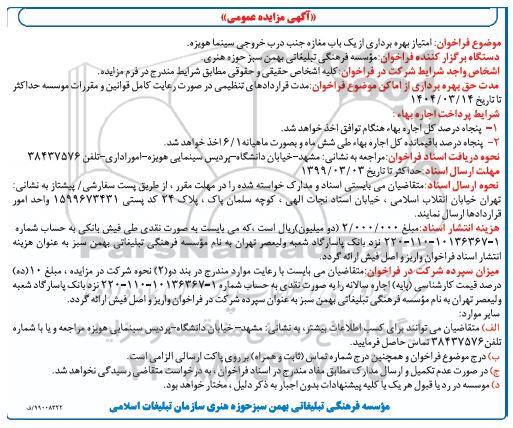 «آگهی مزایده عمومی»
موضوع فراخوان: امتیاز بهره برداری از یک باب مغازه جنب درب خروجی سینما هویزه.
دستگاه برگزار کننده فراخوان: مؤسسه فرهنگی تبلیغاتی بهمن سبز حوزه هنری.
اشخاص واجد شرایط شرکت در فراخوان: کلیه اشخاص حقیقی و حقوقی مطابق شرایط مندرج در فرم مزایده.
مدت حق بهره برداری از اماکن موضوع فراخوان: مدت قراردادهای تنظیمی در صورت رعایت کامل قوانین و مقررات موسسه حداکثر
تا تاریخ ۱۴۰۴/۰۳/۱۴
شرایط پرداخت اجاره بهاء :
۱- پنجاه درصد کل اجاره بهاء هنگام توافق اخذ خواهد شد.
۲- پنجاه درصد باقیمانده کل اجاره بهاء طی شش ماه و بصورت ماهیانه ۶/۱ اخذ خواهد شد.
نحوه دریافت اسناد فراخوان: مراجعه به نشانی: مشهد-خیابان دانشگاه-پردیس سینمایی هویزه-اموراداری-تلفن ۳۸۴۳۷۵۷۶
مهلت ارسال اسناد: حداکثر تا تاریخ ۱۳۹۹/۰۳/۰۳
نحوه ارسال اسناد: متقاضیان می بایستی اسناد و مدارک خواسته شده را در مهلت مقرر ، از طریق پست سفارشی/ پیشتاز به نشانی:
تهران خیابان انقلاب اسلامی ، خیابان استاد نجات الهی ، کوچه سلمان پاک ، پلاک ۲۴ کد پستی ۱۵۹۹۶۷۳۴۳۱ واحد امور
قراردادها ارسال نمایند.
هزینه انتشار اسناد: مبلغ ۲/۰۰۰/۰۰۰ (دو میلیون)ریال است ،که می بایست به صورت نقدی طی فیش بانکی به حساب شماره
۱-۱۰۱۳۶۳۶۷-۱۱۰-۲۲۰ نزد بانک پاسارگاد شعبه ولیعصر تهران به نام مؤسسه فرهنگی تبلیغاتی بهمن سبز به عنوان هزینه
انتشار اسناد فراخوان واریز و اصل فیش ارائه گردد.
میزان سپرده شرکت در فراخوان: متقاضیان می بایست با رعایت موارد مندرج در بند دو(۲) نحوه شرکت در مزایده ، مبلغ ۱۰(ده)
درصد قیمت کارشناسی (پایه) اجاره سالانه را به صورت نقدی به حساب شماره ۱-۱۰۱۳۶۳۶۷-۱۱۰-۲۲۰ نزد بانک پاسارگاد شعبه
ولیعصر تهران به نام مؤسسه فرهنگی تبلیغاتی بهمن سبز به عنوان سپرده شرکت در فراخوان واریز و اصل فیش ارائه گردد.
سایر موارد:
الف) متقاضیان می توانند برای کسب اطلاعات بیشتر، به نشانی: مشهد- خیابان دانشگاه-پردیس سینمایی هویزه مراجعه و یا با شماره
تلفن ۳۸۴۳۷۵۷۶ تماس حاصل فرمایید.
ب) درج موضوع فراخوان و همچنین درج شماره تماس (ثابت و همراه) بر روی پاکت ارسالی الزامی است.
ج) در صورت عدم تکمیل و ارسال مدارک مطابق مفاد مندرج در اسناد فراخوان ، به درخواست متقاضی رسیدگی نخواهد شد.
د) موسسه در رد یا قبول هر یک یا کلیه پیشنهادات بدون اجبار به ذکر دلیل ، مختار خواهد بود.
مؤسسه فرهنگی تبلیغاتی بهمن سبز حوزه هنری سازمان تبلیغات اسلامی
۹۹۰۰۸۳۲۲/ق